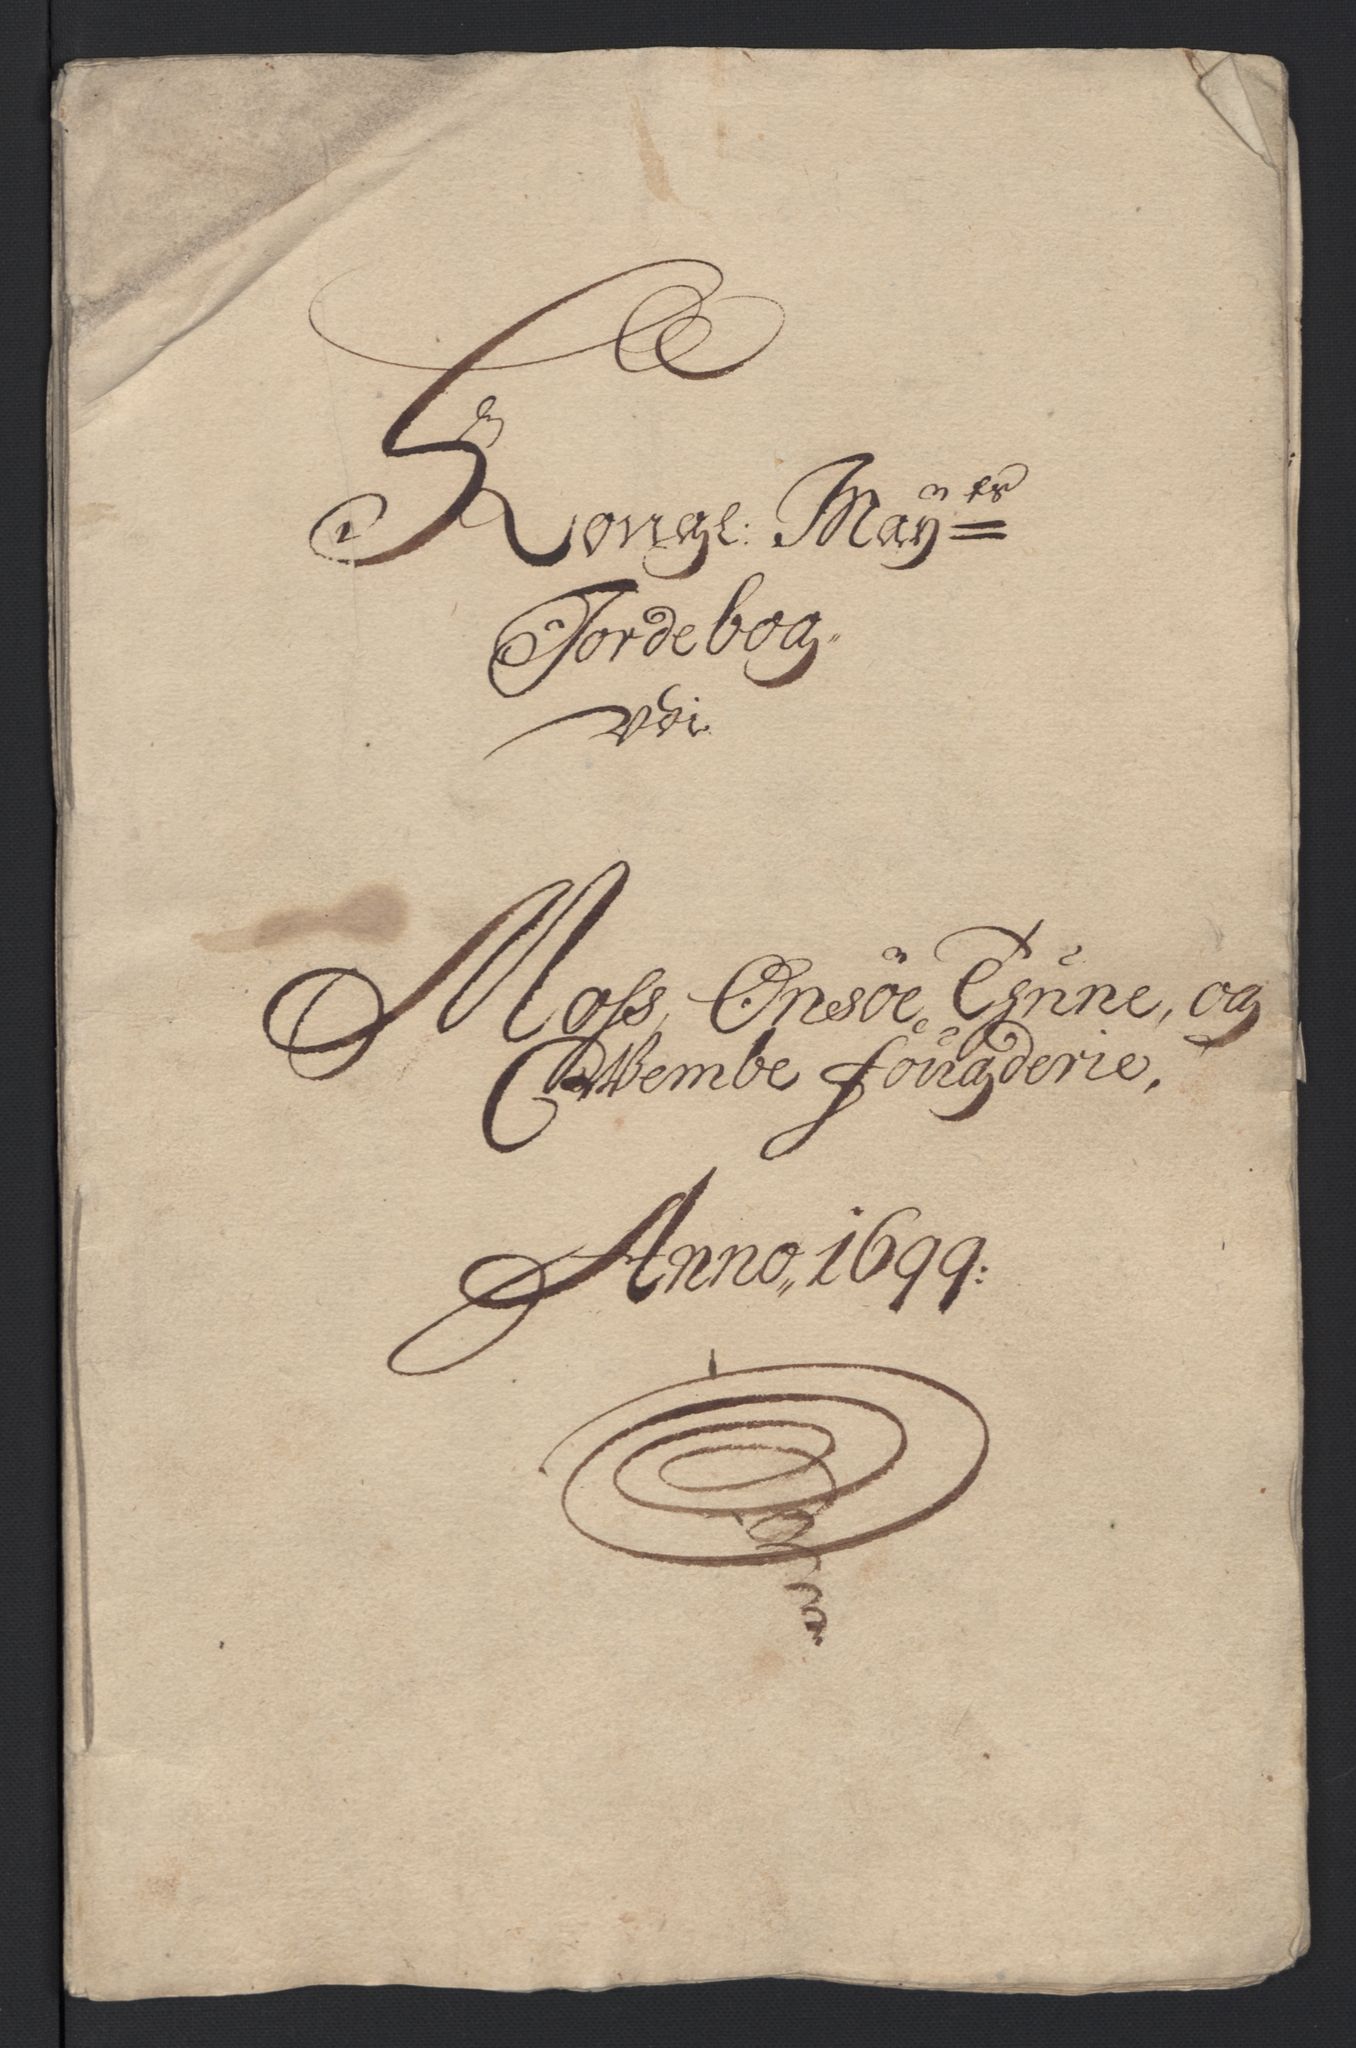 Kongl: Maÿ:tz
Jordebog
Moss, Onsöe, Tŭne, og
Wembe foŭgderie,
Anno, 1699: